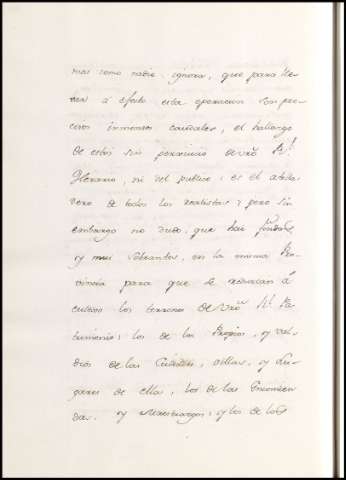 mas como nadie ignora, que para lle-
var á efecto esta operacion son pre-
cisos inmensos caudales, el hallazgo
de estos sin perjuicio de vrō R.l
Herario, ni del publico; es el
de todos los ; pero sin
embargo no dudo, que hai fondos
y mui sobrantes, en la misma Pro-
vincia para que se reduzcan á
cultivo los terrenos de vrō R.l Pa-
trimonio; los de los Propios, y val-
dios de las Ciudades, villas, y Lu-
gares de ellas, los de las Encomien-
das, y Maestrazgos; y los de los